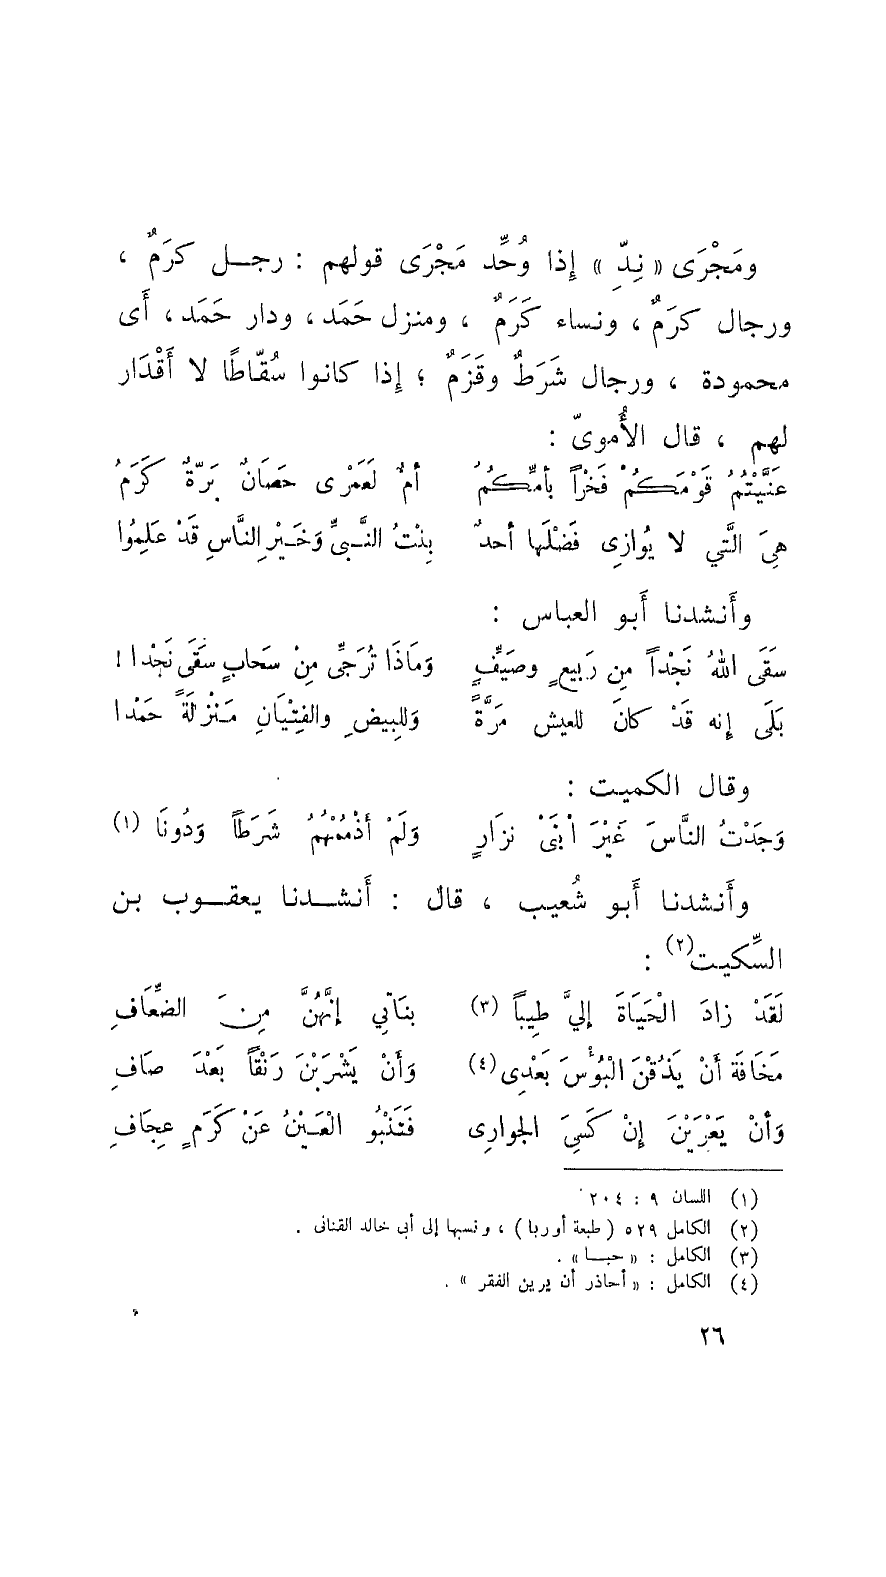 ومَجْرَى « نِدّ » إذا وُحِّد مَجْرَى قولهم : رجل كرَمٌ ،
ورجال كرَمٌ ، ونساء كَرَمٌ ، ومنزل حَمَد ، ودار حَمَد ، أَى
محمودة ، ورجال شَرَطٌ وقَزَمٌ ؛ إذا كانوا سُقّاطًا لا أَقْدَار
لهم ، قال الأُموىّ :
عَنَّيْتُمُ قَوْمَكُمْ فَخْراً بأمِّكُمُ أمٌّ لَعَمْرِى حَصَانٌ بَرّةٌ كَرَمُ
هِىَ الَّتي لا يُوازِى فَضْلَها أحدٌ بِنْتُ النَّبىِّ وَخَيْرِ النَّاسِ قَدْ عَلِمُوا
وأَنشدنا أَبو العباس :
سَقَى اللهُ نَجْداً مِن رَبيعٍ وصَيِّفٍ وَمَاذَا تُرَجِّى مِنْ سَحابٍ سَقَى نَجْدا !
بَلَى إنه قَدْ كانَ للعيش مَرَّةً وَللبِيضِ والفِتْيَانِ مَنْزلَةً حَمْدا
وقال الكميت :
وَجَدْتُ النَّاسَ غَيْرَ ابْنَىْ نزارٍ وَلَمْ أذْمُمْهُمُ شَرَطاً وَدُونَا (١)
وأَنشدنا أَبو شُعيب ، قال : أَنشدنا يعقوب بن
السِّكيت(٢) :
لَقَدْ زادَ الْحَيَاةَ إليَّ طِيباً (٣) بنَاتي إنَّهُنَّ مِنَ الضِّعَافِ
مَخَافَة أنْ يَذُقْنَ الْبُؤْسَ بَعْدِى(٤) وَأَنْ يَشْرَبْنَ رَنْقاً بَعْدَ صَافِ
وَأنْ يَعْرَيْنَ إنْ كَسِىَ الجوارِى فَتَنْبُو الْعَيْنُ عَنْ كَرَمٍ عِجَافِ
(١) اللسان ٩ : ٢٠٤
(٢) الكامل ٥٢٩ ( طبعة أوربا ) ، ونسبها إلى أبى خالد القنانى .
(٣) الكامل : « حبا » .
(٤) الكامل : « أحاذر أن يرين الفقر » .
٢٦